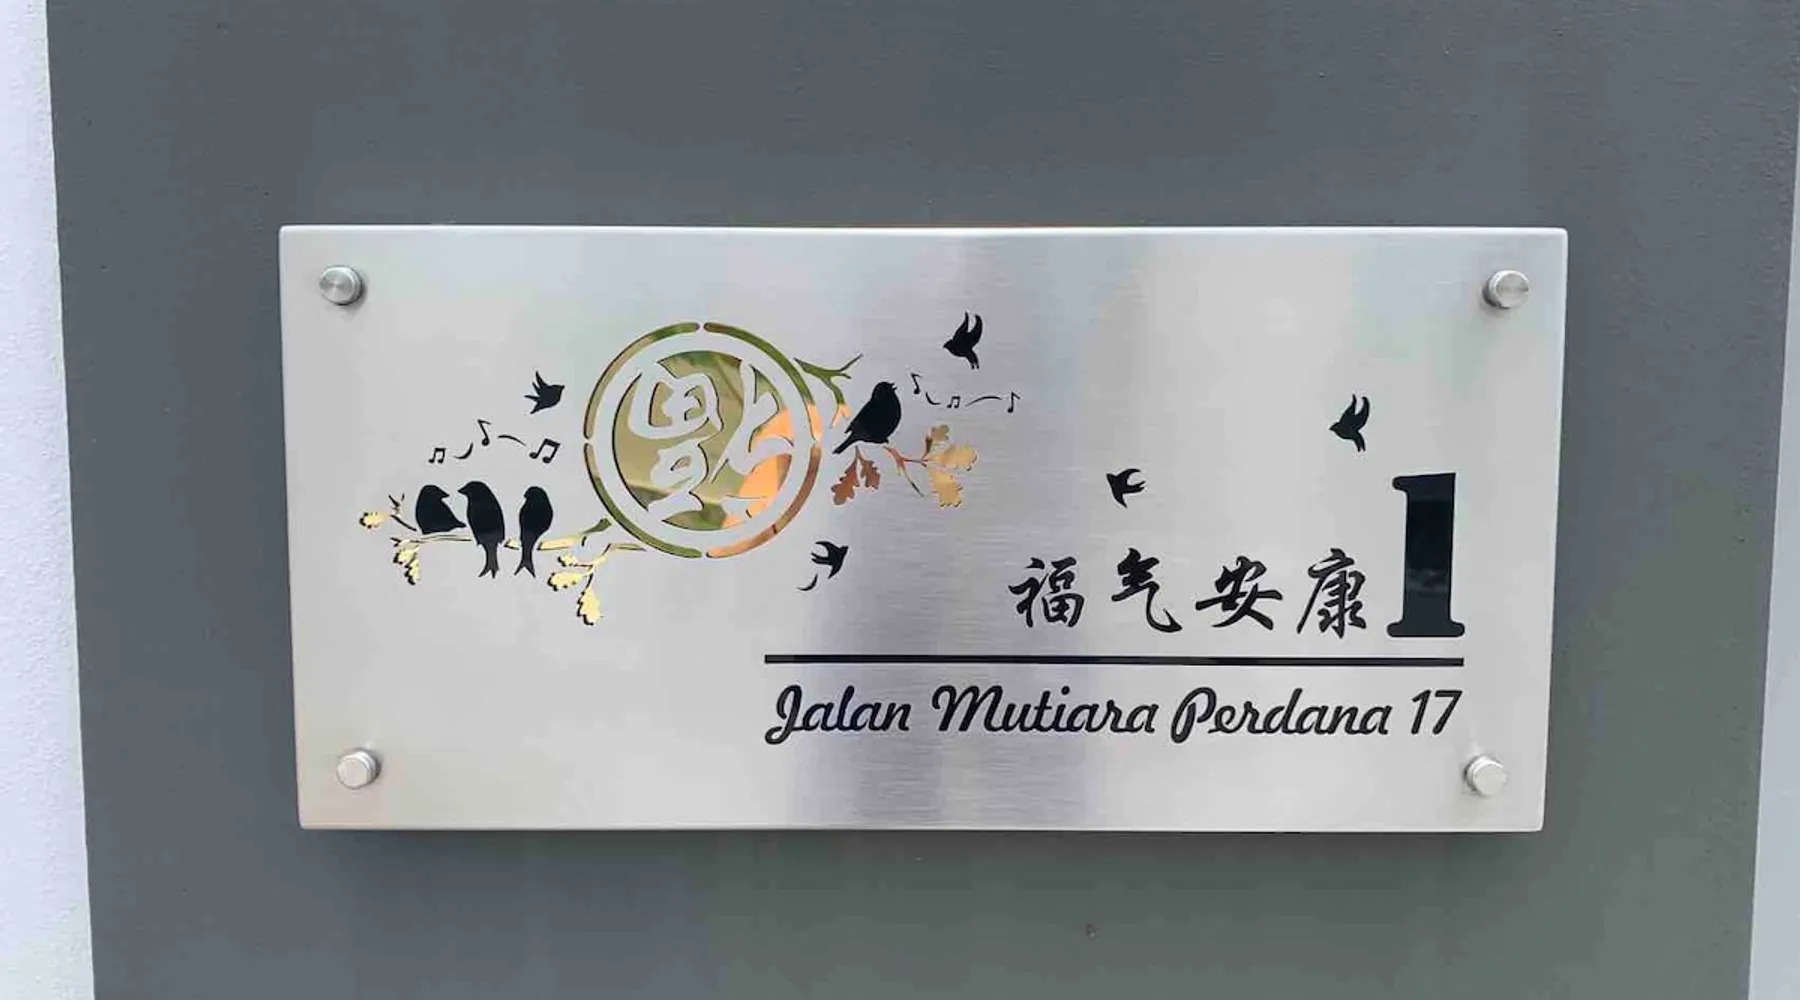 福
福气安康 1
Jalan Mutiara Perdana 17